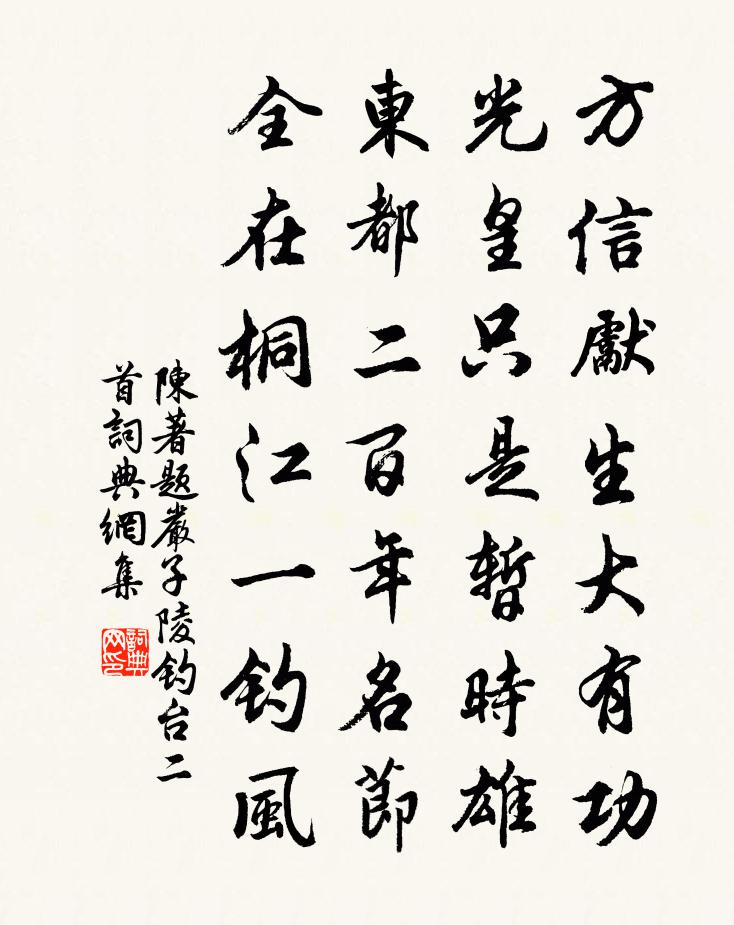 方信獻生大有功
光皇只是暫時雄
東都二百年名節
全在桐江一釣風
陳著題嚴子陵釣台二
首詞典網集
詞典网印